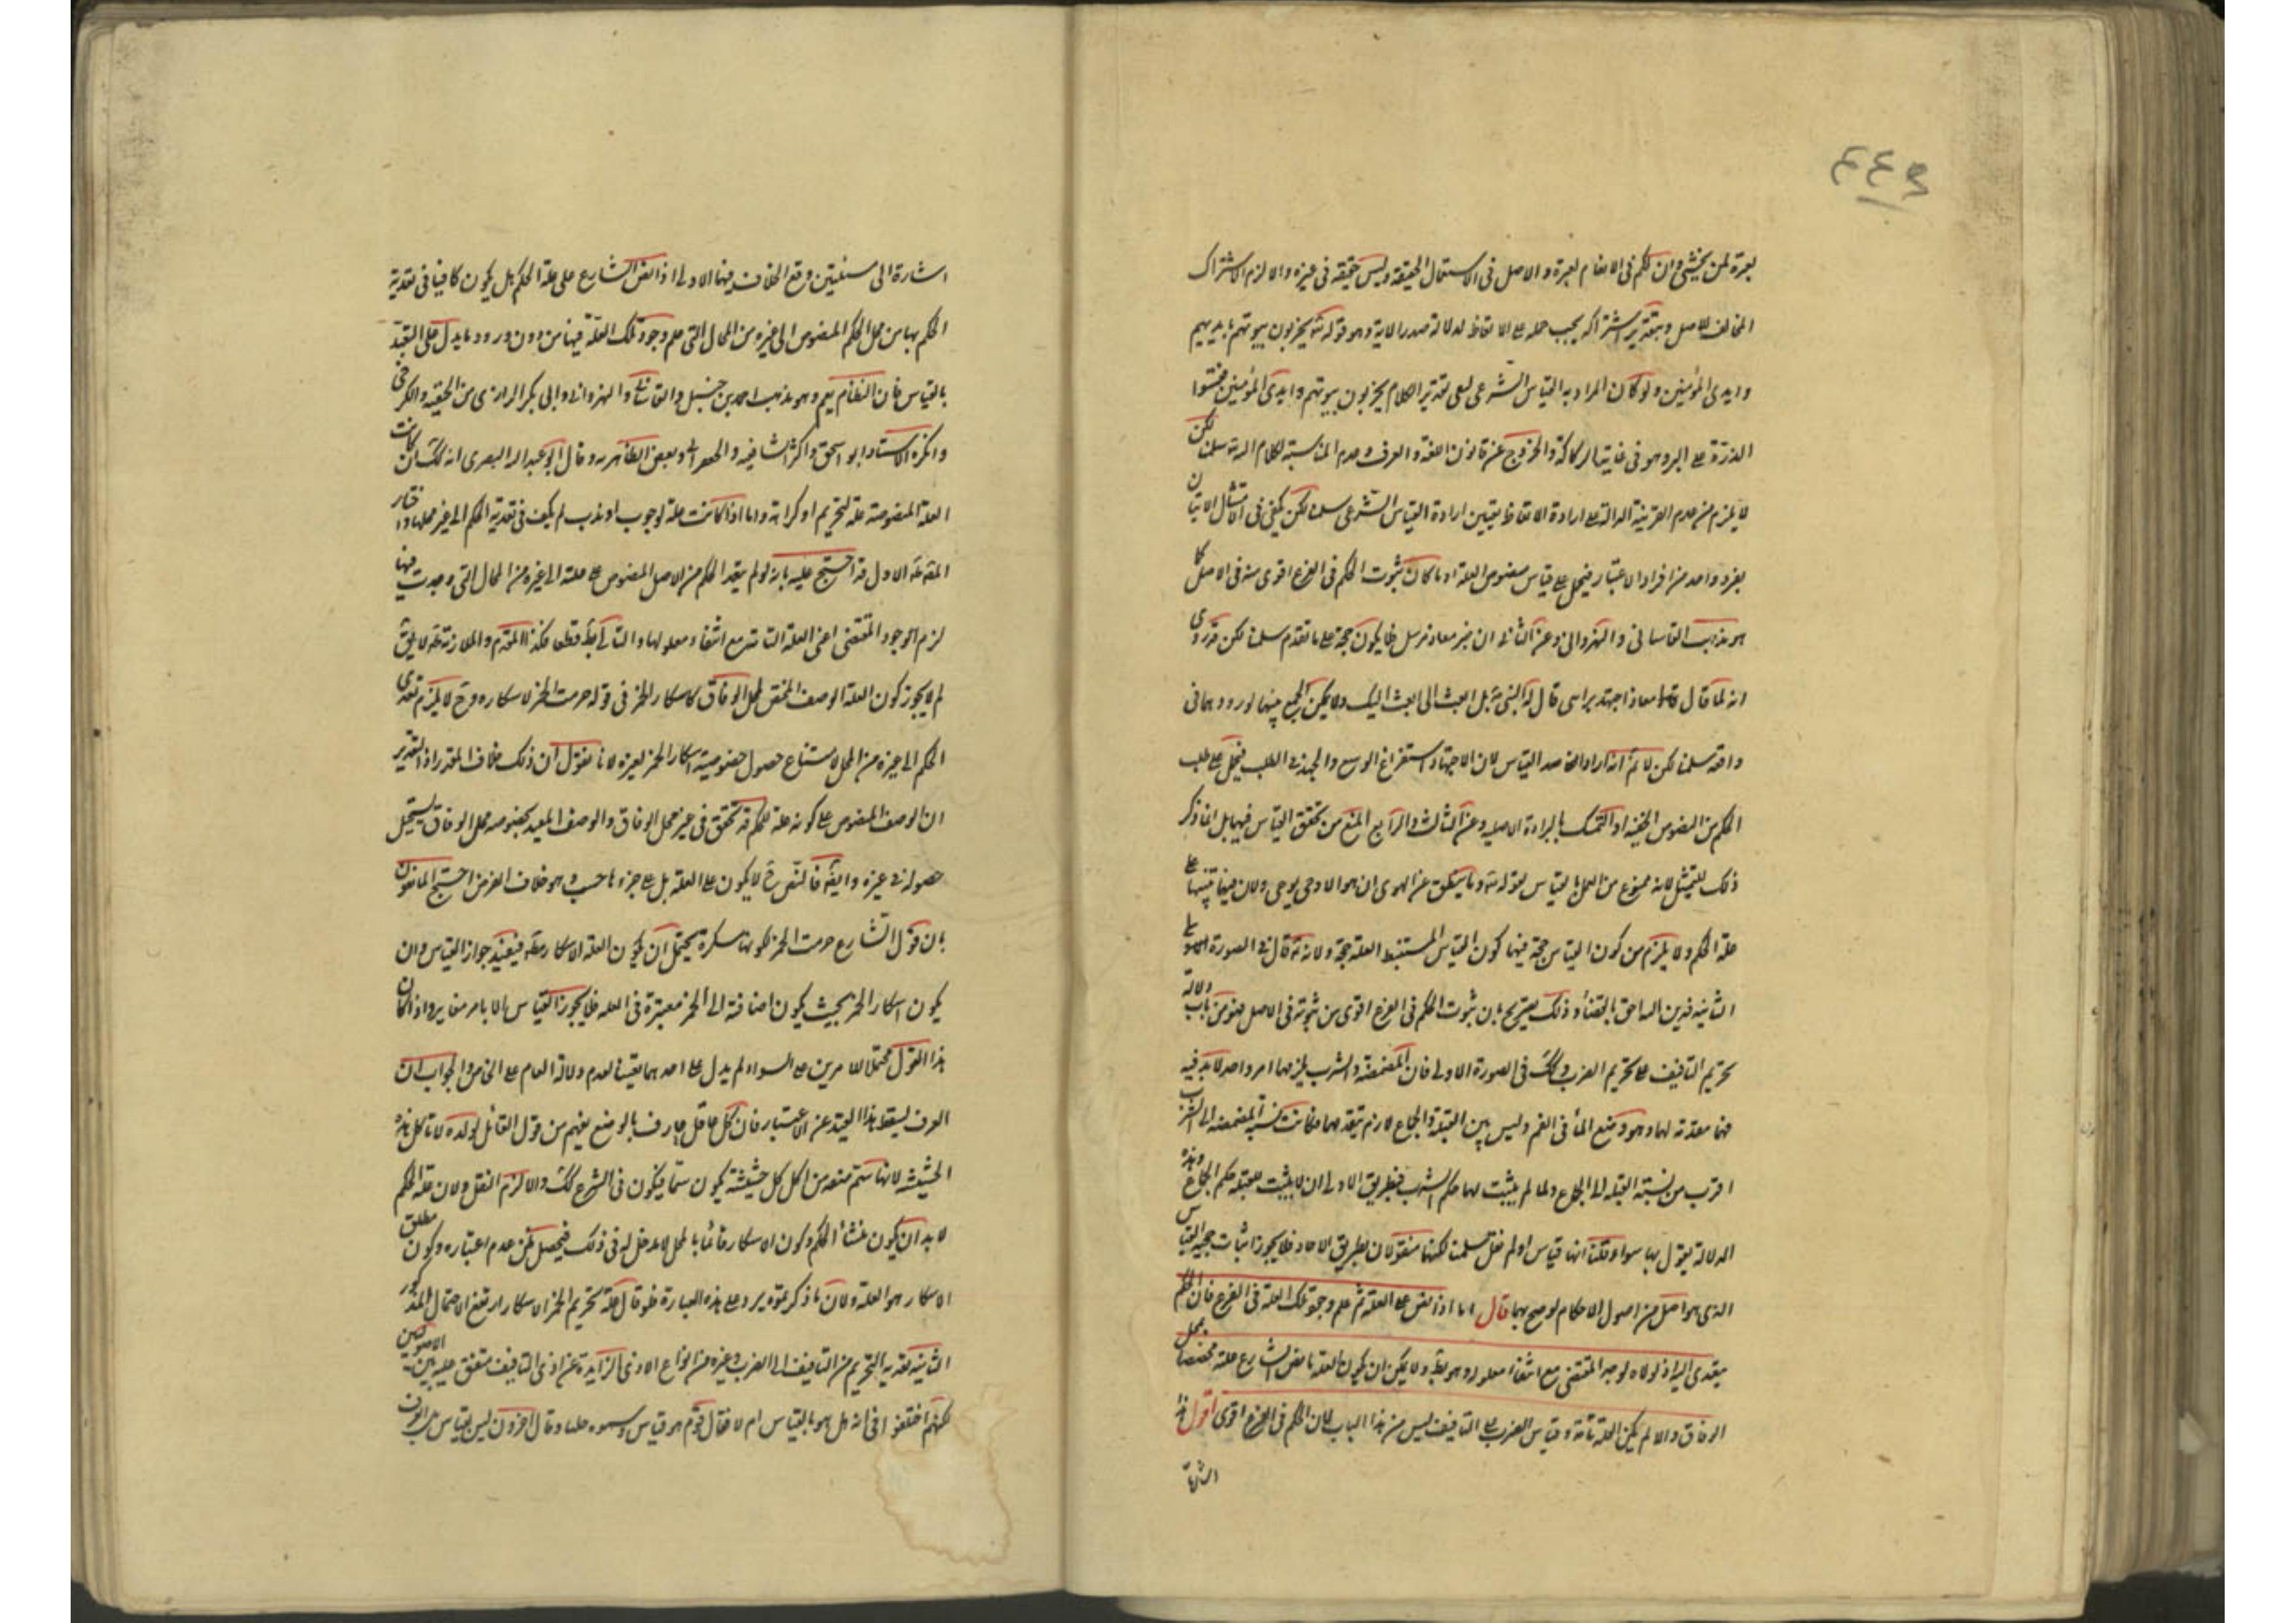 ٤٤٩
لعبرة لمن يخشى وان لكم فى الانعام لعبرة والاصل فى الاستعمال الحقيقة وليس حقيقة فى غيره والا لزم الاشتراك
المخالف للاصل وبتقدير اشتراكه يجب حمله على الاتعاظ لدلالة صدر الاية وهو قوله تع يخربون بيوتهم بايديهم
وايدى المؤمنين ولو كان المراد به القياس الشرعى لبقى تقدير الكلام يخربون بيوتهم وايدى المؤمنين فقيسوا
الذرة على البر وهو فى غاية الركاكة والخروج عن قانون اللغة والعرف وعدم المناسبة لكلام الله تع سلمنا لكن
لا يلزم من عدم القرينة الدالة على ارادة الاتعاظ تعيين ارادة القياس الشرعى سلمنا لكن يكفى فى امتثال الاتيان
بفرد واحد من افراد الاعتبار فيحمل على قياس منصوص العلة او ما كان ثبوت الحكم فى الفرع اقوى منه فى الاصل كما
هو مذهب القاسانى والنهروانى وعن الثانى ان خبر معاذ مرسل فلا يكون حجة على ما تقدم سلمنا لكن قد روى
انه لما قال معاذ اجتهد برايى قال له النبى بل ابعث الى ابعث اليك ولا يمكن الجمع بينهما لورودهما فى
واقعة سلمنا لكن لا نم انه اراد القياس لان الاجتهاد استفراغ الوسع والجهد فى الطلب فيحمل على طلب
الحكم من النصوص الخفية او التمسك بالبراءة الاصلية وعن الثالث والرابع المنع من تحقق القياس فيها بل انما ذكر
ذلك للتمثيل لانه ممنوع من العمل بالقياس لقوله تع وما ينطق عن الهوى ان هو الا وحى يوحى ولان فيها تنبيها على
علة الحكم ولا يلزم من كون القياس حجة فيها كون القياس المستنبط العلة حجة ولانه قال فى الصورة
الثانية فدين الله احق بالقضاء وذلك تصريح بان ثبوت الحكم فى الفرع اقوى من ثبوته فى الاصل فهو من باب دلالة
تحريم التافيف على تحريم الضرب وكك فى الصورة الاولى فان المضمضة والشرب يلزمهما امر واحد لا بد فيه
فهما مقدمة لها وهو وضع الماء فى الفم وليس بين القبلة والجماع لازم يتقدمهما فكانت نسبة المضمضة الى الشرب
اقرب من نسبة القبلة الى الجماع ولما لم يثبت لها حكم الشرب فبطريق الاولى ان لا يثبت للقبلة حكم الجماع وهذه
الدلالة يقول بها سواء قلنا انها قياس او لم نقل سلمنا لكنها منقولان بطريق الاحاد فلا يجوز اثبات حجية القياس
الذى هو اصل من اصول الاحكام لو صح بها قال اما اذا نص على العلة ثم علم وجود تلك العلة فى الفرع فان الحكم
يتعدى اليه اذ لولاه لوجد المقتضى مع انتفاء معلوله وهو بط ولا يمكن ان يكون العلة ما نص الشارع علته مختصا بمحل
الوفاق والا لم يكن العلة تامة وقياس الضرب على التافيف ليس من هذا الباب لان الحكم فى الفرع اقوى اقول هذا
اشارة
اشارة الى مسئلتين وقع الخلاف فيهما الاولى اذا نص الشارع على علة الحكم هل يكون كافيا فى تعدية
الحكم بها من محل الحكم المنصوص الى غيره من المحال التى علم وجود تلك العلة فيها من دون ورود ما يدل على التعبد
بالقياس فان النظام نعم وهو مذهب احمد بن حنبل والقاسانى والنهروانى وابى بكر الرازى من الحنفية والكرخى
وانكره الاستاد ابو اسحق واكثر الشافعية والجعفران وبعض الظاهرية وقال ابو عبد الله البصرى انه كك ان كانت
العلة المنصوصة علة لتحريم او كراهة واما اذا كانت علة لوجوب او ندب لم يكف فى تعدية الحكم الى غير محلها واختار
المص الاول قد احتج عليه بانه لو لم يتعد الحكم من الاصل المنصوص على علته الى غيره من المحال التى وجدت فيها
لزم وجود المقتضى اعنى العلة التامة مع انتفاء معلولها والتالى بط قطعا فكذا المقدم والملازمة ظه لا يق
لم لا يجوز كون العلة الوصف المختص لمحل الوفاق كاسكار الخمر فى قوله حرمت الخمر لاسكاره وح لا يلزم تعدى
الحكم الى غيره من المحل لامتناع حصول خصوصية اسكار الخمر لغيره لانا نقول ان ذلك خلاف المقدر اذ التقدير
ان الوصف المنصوص على كونه علة للحكم قد تحقق فى غير محل الوفاق والوصف المقيد بخصوصه محل الوفاق يستحيل
حصوله فى غيره وايضا فالنص ح لا يكون على العلة بل على جزءها حسب وهو خلاف الفرض احتج المانعون
بان قول الشارع حرمت الخمر لكونها مسكرة يحتمل ان يكون العلة الاسكار مط فيفيد جواز القياس وان
يكون اسكار الخمر بحيث يكون اضافة الى الخمر معتبرة فى العلة فلا يجوز القياس الا بامر مغاير واذا كان
هذا القول محتملا للامرين على السواء لم يدل على احدهما بعينه لعدم دلالة العام على الخاص والجواب ان
العرف يسقط هذا القيد عن الاعتبار فان كل عاقل عارف بالوضع يفهم من قول القائل لولده لا تاكل هذه
الحشيشة لانها سم منعه من اكل كل حشيشة يكون سما فيكون فى الشرع كك والا لزم النقل ولان علة الحكم
لا بد ان يكون منشأ الحكم وكون الاسكار قائما بالمحل لا مدخل له فى ذلك فيحصل ظن عدم اعتباره وكون مطلق
الاسكار هو العلة ولان ما ذكرتموه يرد على هذه العبارة فلو قال علة تحريم الخمر الاسكار ارتفع الاحتمال المذكور
الثانية تعدية التحريم من التافيف الى الضرب وغيره من انواع الاذى الزايدة عن اذى التافيف متفق عليه بين الاصوليين
لكنهم اختلفوا فى انه هل هو بالقياس ام لا فقال قوم هو قياس وسموه جليا وقال اخرون ليس بقياس بل العرف